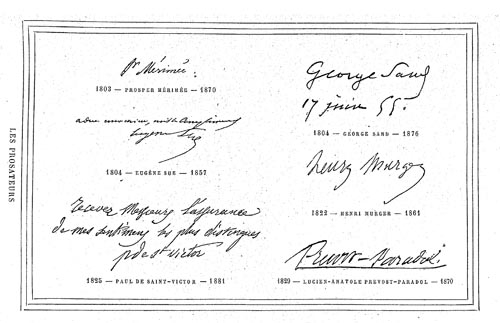 LES PROSATEURS
Pr Mérimée.
1803 — PROSPER MÉRIMÉE — 1870
George Sand
17 juin 55.
1804 — GEORGE SAND — 1876
1804 — EUGÈNE SUE — 1857
Henry Murger
1822 — HENRI MURGER — 1861
Recevez Messieurs l'assurance
de mes sentimens les plus distingués
p de st victor
1825 — PAUL DE SAINT-VICTOR — 1881
Prevost-Paradol.
1829 — LUCIEN-ANATOLE PREVOST-PARADOL — 1870